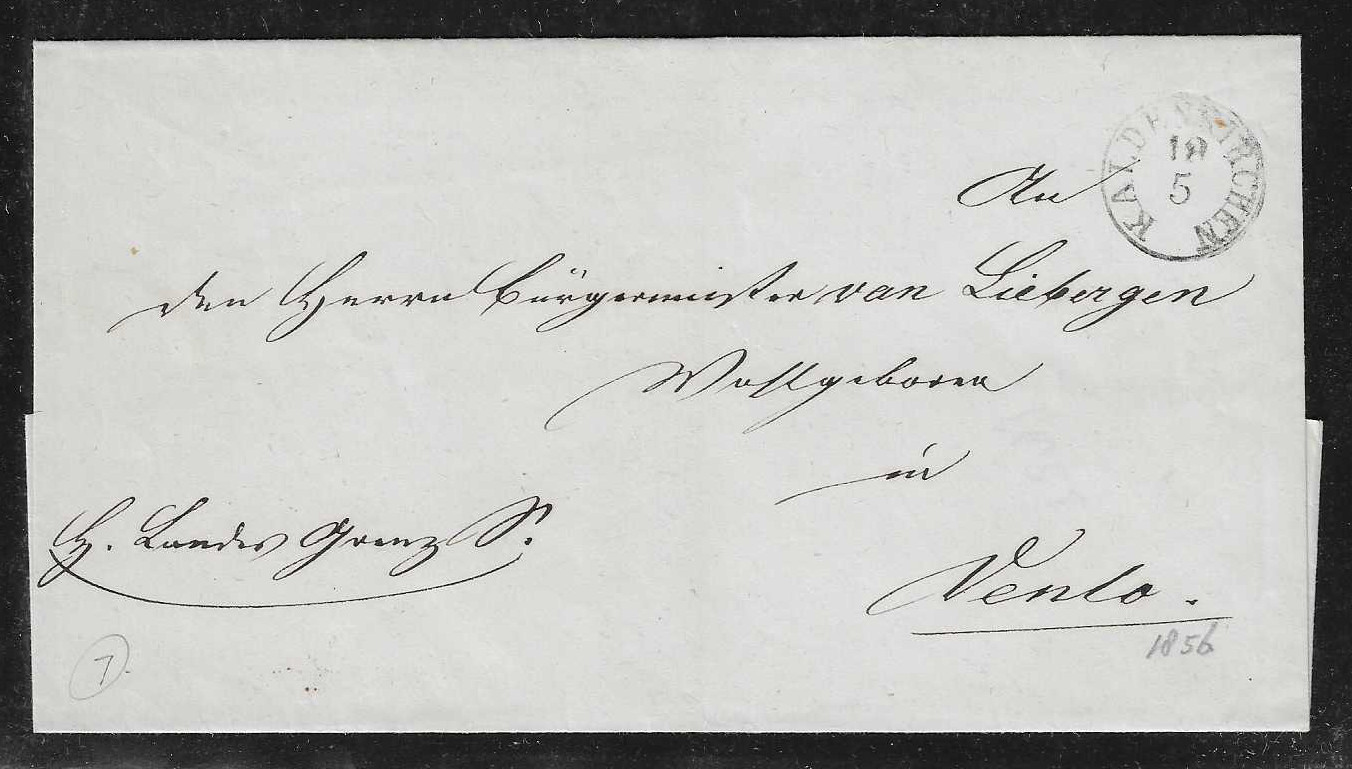 KALDENKIRCHEN
19
5
An
den Herrn Bürgermeister van Liebergen
Wohlgeboren
in
H. Landes Grenz S.
Venlo.
1856
7